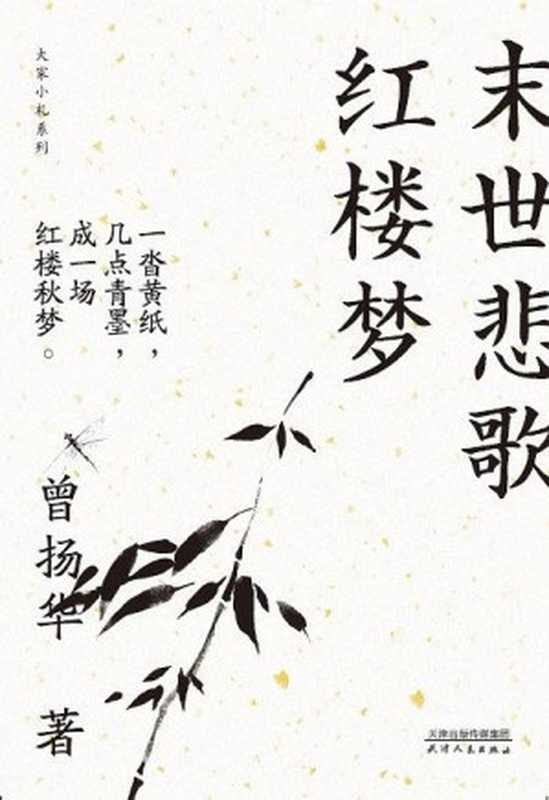 末世悲歌
红楼梦
一沓黄纸，
几点青墨，
成一场
红楼秋梦。
大家小札系列
曾扬华 著
天津出版传媒集团
天津人民出版社